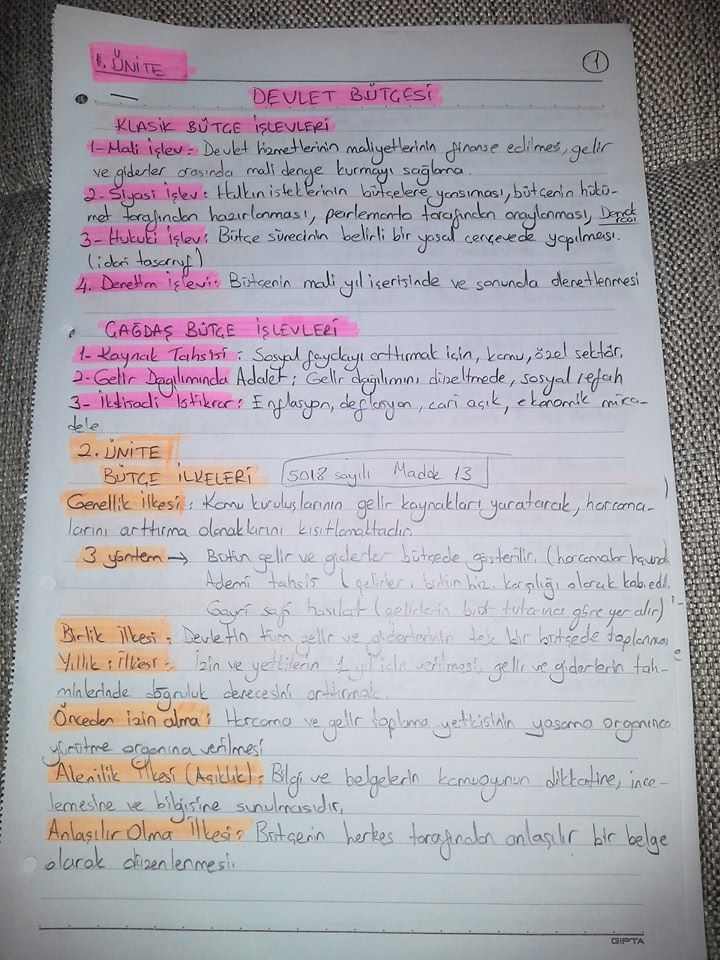 1. ÜNİTE
1
DEVLET BÜTÇESİ
KLASİK BÜTÇE İŞLEVLERİ
1- Mali işlev : Devlet hizmetlerinin maliyetlerinin finanse edilmesi, gelir
ve giderler arasında mali denge kurmayı sağlama.
2- Siyasi İşlev : Halkın isteklerinin bütçelere yansıması, bütçenin hükü-
met tarafından hazırlanması, parlamento tarafından onaylanması,
3- Hukuki İşlev : Bütçe sürecinin belirli bir yasal çerçevede yapılması.
(idari tasarruf)
4. Denetim İşlevi : Bütçenin mali yıl içerisinde ve sonunda denetlenmesi
ÇAĞDAŞ BÜTÇE İŞLEVLERİ
1- Kaynak Tahsisi : Sosyal faydayı arttırmak için, kamu, özel sektör.
2- Gelir Dağılımında Adalet : Gelir dağılımını düzeltmede, sosyal refah
3- İktisadi İstikrar : Enflasyon, deflasyon, cari açık, ekonomik müca-
dele
2. ÜNİTE
BÜTÇE İLKELERİ 5018 sayılı Madde 13
Genellik İlkesi : Kamu kuruluşlarının gelir kaynakları yaratarak, harcama-
larını arttırma olanaklarını kısıtlamaktadır.
3 yöntem → Bütün gelir ve giderler bütçede gösterilir. (harcamalar
Ademi tahsis (gelirler, bütün hiz. karşılığı olarak kab.edil.
Gayri safi hasılat (gelirlerin brüt tutarına göre yer alır)
Birlik İlkesi : Devletin tüm gelir ve giderlerinin tek bir bütçede toplanması
Yıllık İlkesi : İzin ve yetkilerin 1 yıl için verilmesi, gelir ve giderlerin tah-
minlerinde doğruluk derecesini arttırmak.
Önceden izin alma : Harcama ve gelir toplama yetkisinin yasama organınca
yürütme organına verilmesi
Alenilik İlkesi (Açıklık) : Bilgi ve belgelerin kamuoyunun dikkatine, ince-
lemesine ve bilgisine sunulmasıdır.
Anlaşılır Olma İlkesi : Bütçenin herkes tarafından anlaşılır bir belge
olarak düzenlenmesi.
GIPTA